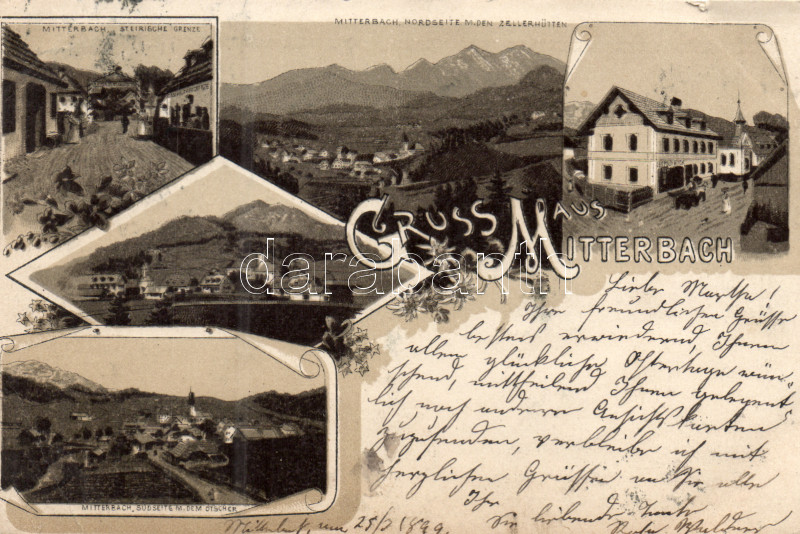 MITTERBACH, STEIRISCHE GRENZE
MITTERBACH, NORDSEITE M. DEN ZELLERHÜTTEN
GRUSS AUS
MITTERBACH
darabanth
Liebe Martha!
Ihre freundlichen Grüsse
bestens erwiedernd, Ihnen
allen glückliche Ostertage wün-
schend, mittheilend Ihnen gelegent-
lich noch andere Ansichtskarten
zuzusenden, verbleibe ich mit
herzlichen Grüssen an Sie alle
Ihre
Sie liebende Tante
MITTERBACH, SÜDSEITE M. DEM ÖTSCHER
Mitterbach, am 25/3 1899.